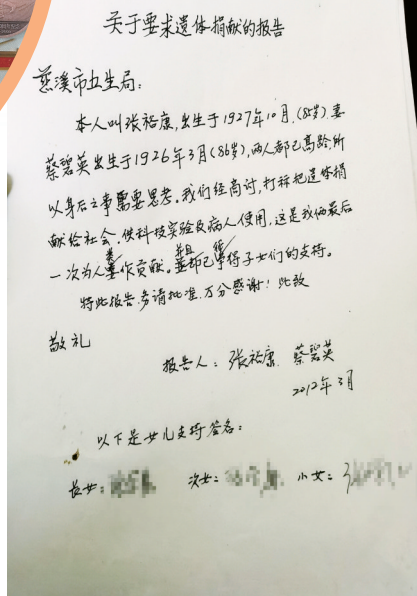 关于要求遗体捐献的报告
慈溪市卫生局:
本人叫张裕康,出生于1927年10月,(85岁)妻
蔡碧英出生于1926年3月(86岁),两人都已高龄,所
以身后之事需要思考。我们经商讨,打算把遗体捐
献给社会,供科技实验及病人使用,这是我俩最后
一次为人类作贡献。并且已获得子女们的支持。
特此报告,多请批准,万分感谢!此致
敬礼
报告人:张裕康 蔡碧英
2012年3月
以下是女儿支持签名:
长女: 次女: 小女: